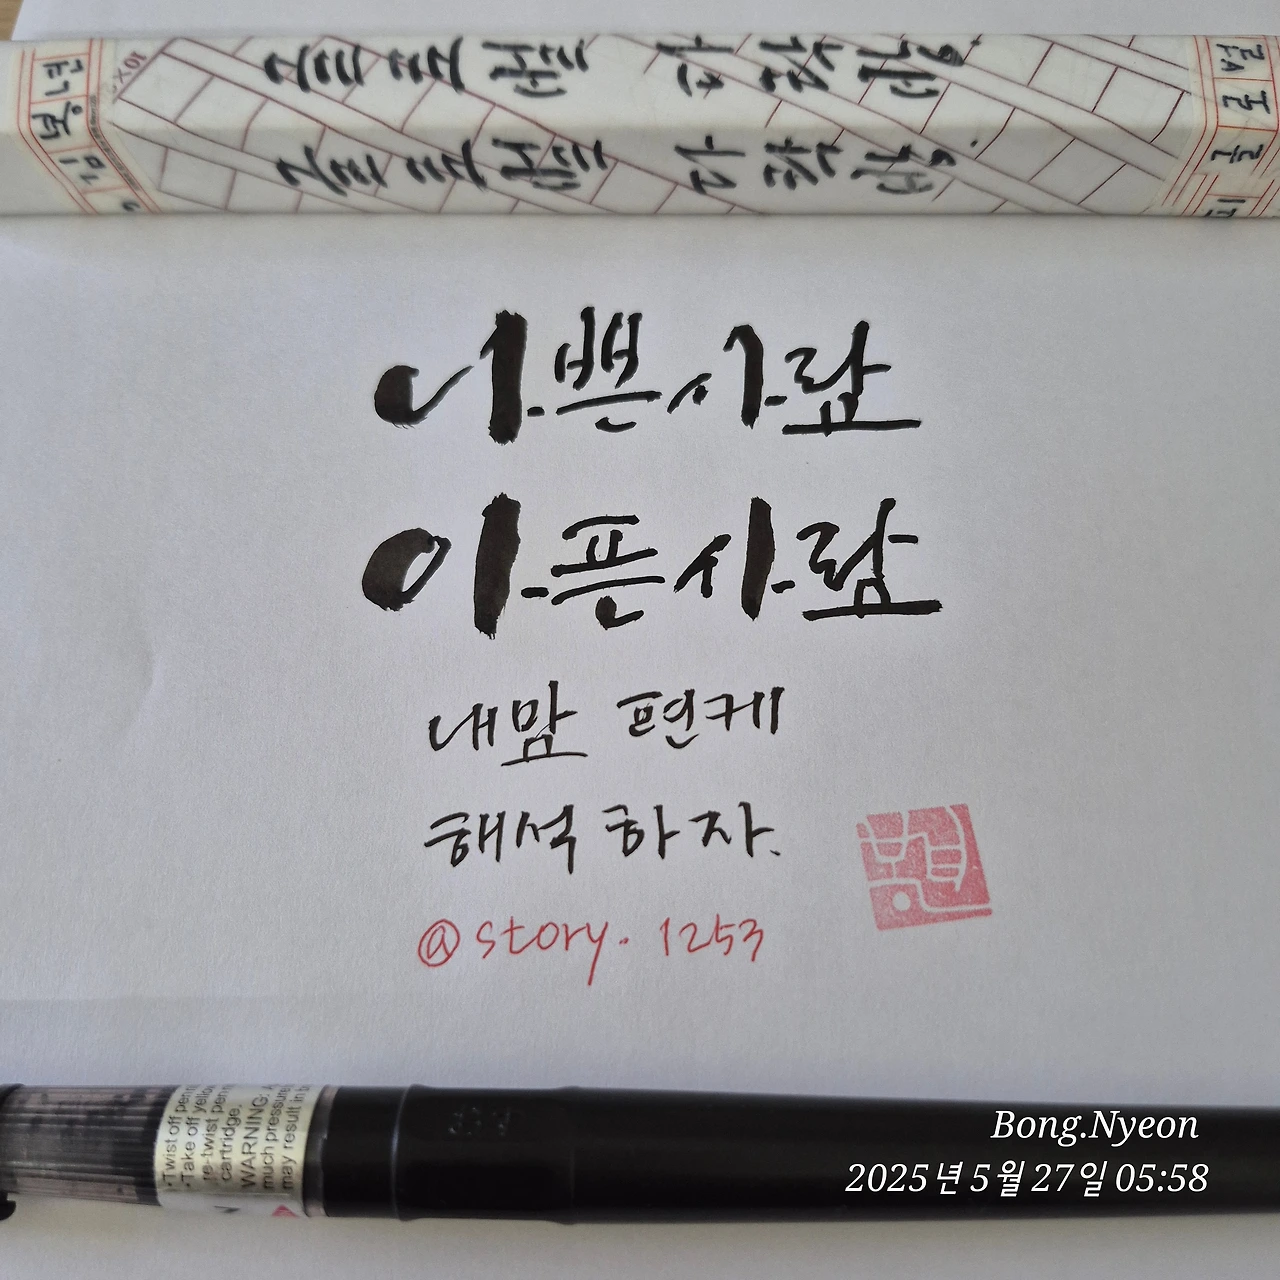 나쁜사람
아픈사람
내맘 편케
해석하자.
@story.1253
*Twist off pen
*Take off yello
re-twist pen
cartridge.
WARNING:
much pressure
may result in b
Bong.Nyeon
2025년 5월 27일 05:58